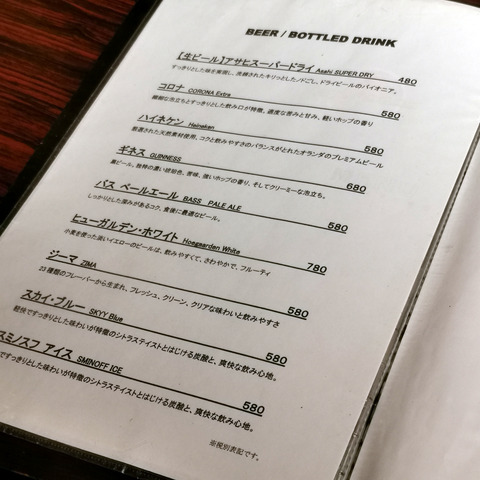 BEER / BOTTLED DRINK
【生ビール】アサヒスーパードライ Asahi SUPER DRY 480
すっきりとした味を実現し、洗練されたキリッとしたノドごし、ドライビールのパイオニア。
コロナ CORONA Extra 580
繊細な泡立ちとすっきりとした飲み口が特徴。適度な苦みと甘み、軽いホップの香り
ハイネケン Heineken 580
厳選された天然素材使用、コクと飲みやすさのバランスがとれたオランダのプレミアムビール
ギネス GUINNESS 680
黒ビール。独特の濃い琥珀色、苦味、強いホップの香り、そしてクリーミーな泡立ち。
バス ペールエール BASS PALE ALE 580
しっかりとした深みがあるコク。食後に最適なビール。
ヒューガルデン・ホワイト Hoegaarden White 780
小麦を使った淡いイエローのビールは、飲みやすくて、さわやかで、フルーティ
ジーマ ZIMA 580
23種類のフレーバーから生まれ、フレッシュ、クリーン、クリアな味わいと飲みやすさ
スカイ・ブルー SKYY Blue 580
軽快ですっきりとした味わいが特徴のシトラステイストとはじける炭酸と、爽快な飲み心地。
スミノフ アイス SMINOFF ICE 580
ですっきりとした味わいが特徴のシトラステイストとはじける炭酸と、爽快な飲み心地。
※税別表記です。